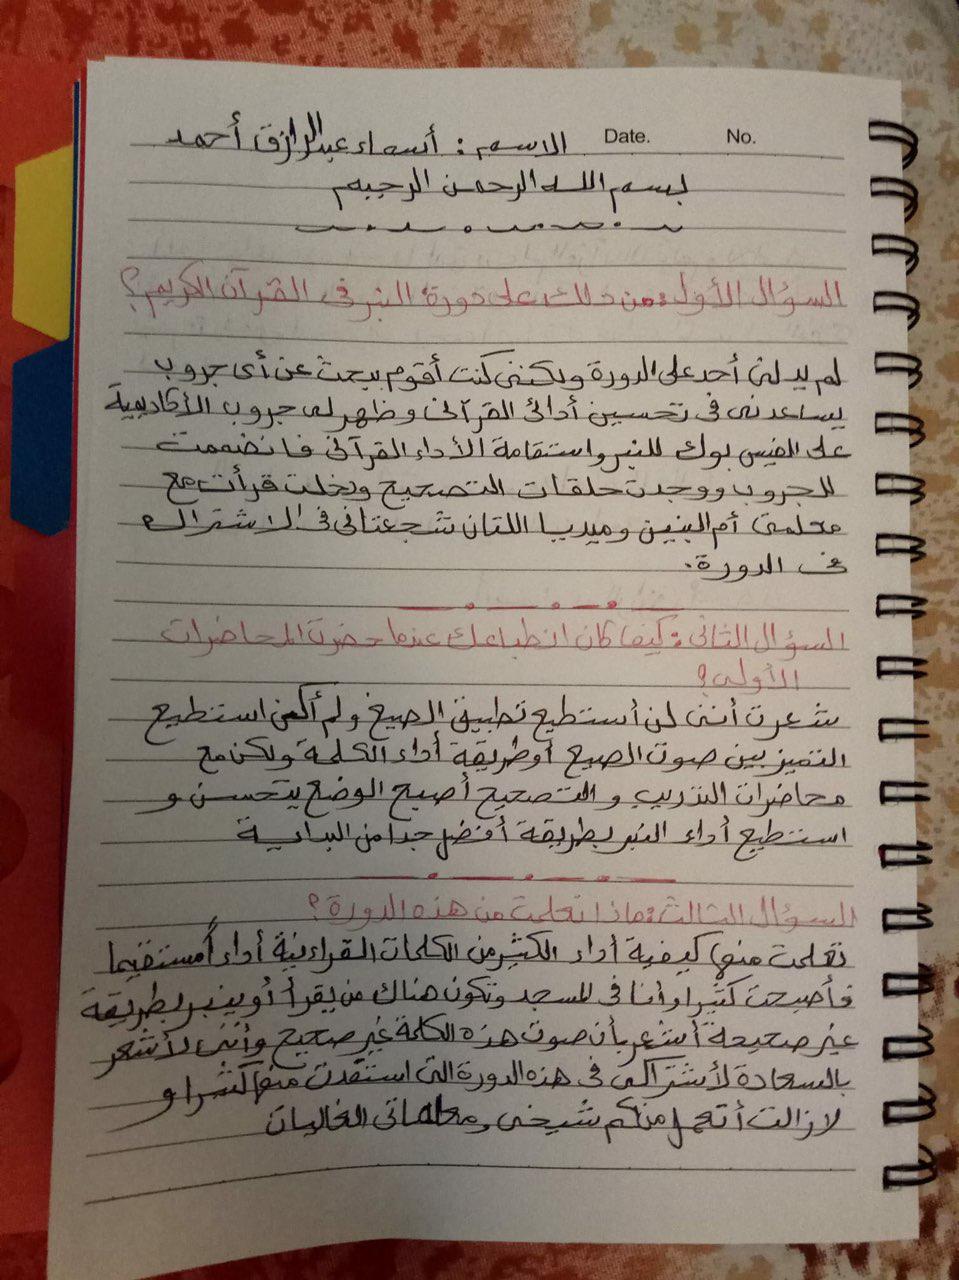 No. Date. الاسم: أسماء عبدالرازق أحمد
بسم الله الرحمن الرحيم
السؤال الأول: من دلك على دورة النبر في القرآن الكريم؟
لم يدلني أحد على الدورة ولكنني كنت أقوم ببحث عن أي جروب
يساعدني في تحسين أدائي القرآني وظهر لي جروب الأكاديمية
على الفيس بوك للنبر واستقامة الأداء القرآني فانضممت
للجروب ووجدت حلقات التصحيح ودخلت قرأت مع
معلمتي أم البنين وميديا اللتان شجعتاني في الاشتراك
في الدورة.
السؤال الثاني: كيف كان انطباعك عندما حضرت المحاضرات
الأولى؟
شعرت أنني لن أستطيع تطبيق الصيغ ولم أكن استطيع
التميز بين صوت الصيغ أو طريقة أداء الكلمة ولكن مع
محاضرات التدريب و التصحيح أصبح الوضع يتحسن و
استطيع أداء النبر بطريقة أفضل جدا من البداية
السؤال الثالث: ماذا تعلمت من هذه الدورة؟
تعلمت منها كيفية أداء الكثير من الكلمات القراءنية أداء مستقيما
فأصبحت كثيرا وأنا في المسجد وتكون هناك من يقرأ أو ينبر بطريقة
غير صحيحة أشعر بأن صوت هذه الكلمة غير صحيح وأنني لأشعر
بالسعادة لأشتراكي في هذه الدورة التي استفدت منها كثيرا و
لازالت أتعلم منكم شيخي ومعلماتي الغاليات